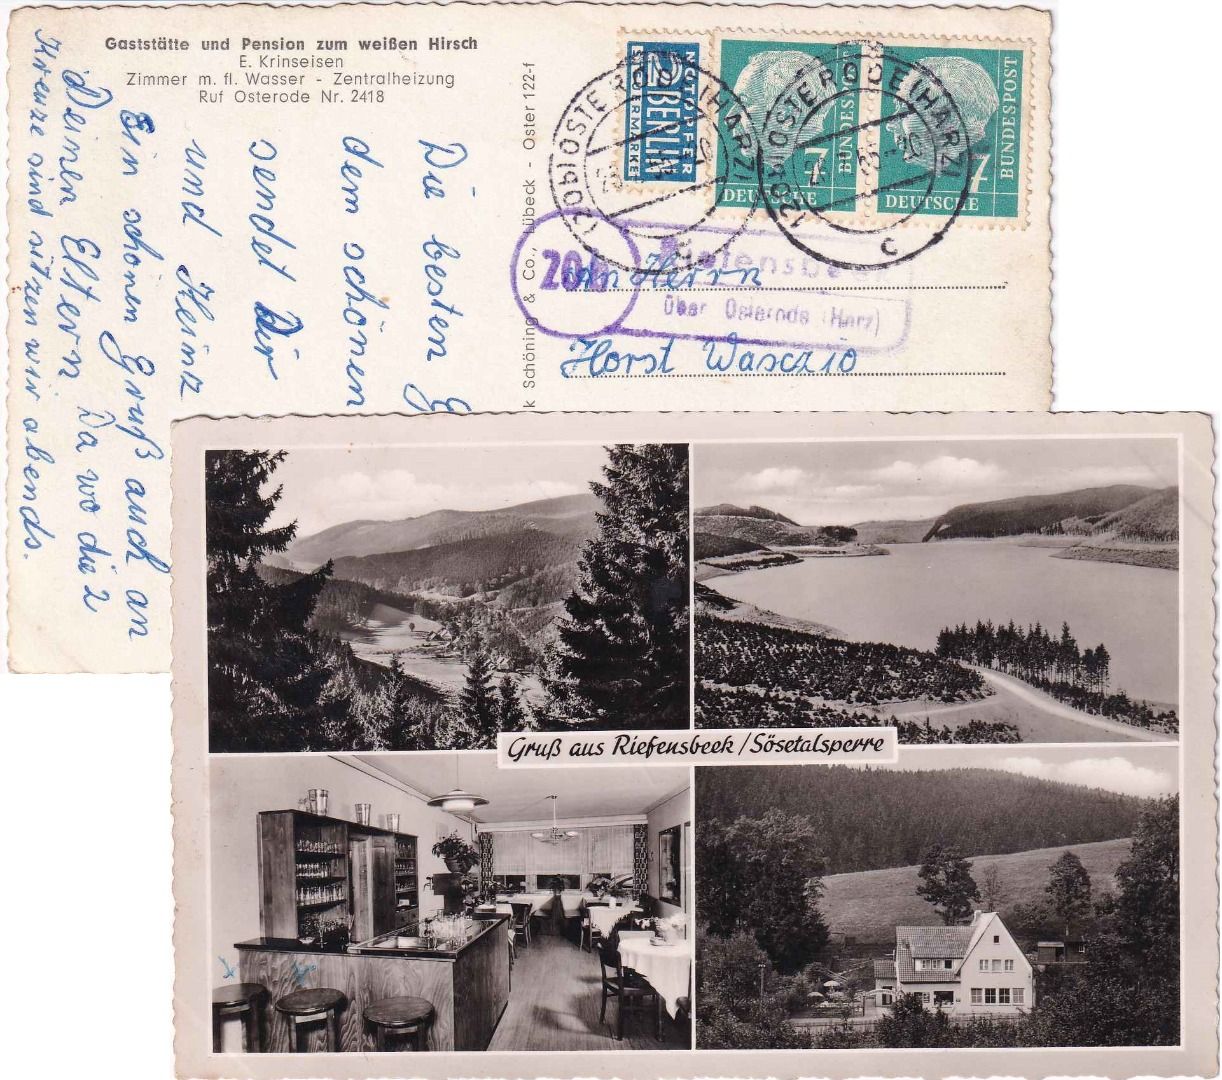 Gaststätte und Pension zum weißen Hirsch
E. Krinseisen
Zimmer m. fl. Wasser - Zentralheizung
Ruf Osterode Nr. 2418
Die besten G
dem schönen
sendet Dir
und Heinz
Ein schönen Gruß auch an
Deinen Eltern Da wo die 2
Kreuze sind sitzen wir abends.
k Schöning & Co., Lübeck - Oster 122-f
NOTOPFER
2 BERLIN
STEUERMARKE
7
BUNDESPOST
DEUTSCHE
7
BUNDESPOST
DEUTSCHE
(20b) OSTERODE (HARZ)
c
(20b) OSTERODE (HARZ)
c
20b
Riefensbeek
über Osterode (Harz)
An Herrn
Horst Wasczio
Gruß aus Riefensbeek / Sösetalsperre